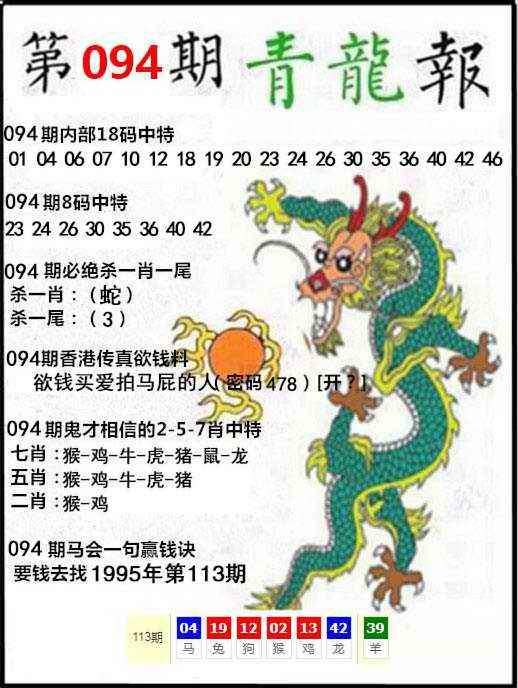 第094期青龍報
094期内部18码中特
01 04 06 07 10 12 18 19 20 23 24 26 30 35 36 40 42 46
094期8码中特
23 24 26 30 35 36 40 42
094 期必绝杀一肖一尾
杀一肖：（蛇）
杀一尾：（3）
094期香港传真欲钱料
欲钱买爱拍马屁的人(密码478）[开？]
094期鬼才相信的2-5-7肖中特
七肖：猴-鸡-牛-虎-猪-鼠-龙
五肖：猴-鸡-牛-虎-猪
二肖：猴-鸡
094 期马会一句赢钱诀
要钱去找1995年第113期
113期 04 19 12 02 13 42 39
马 兔 狗 猴 鸡 龙 羊